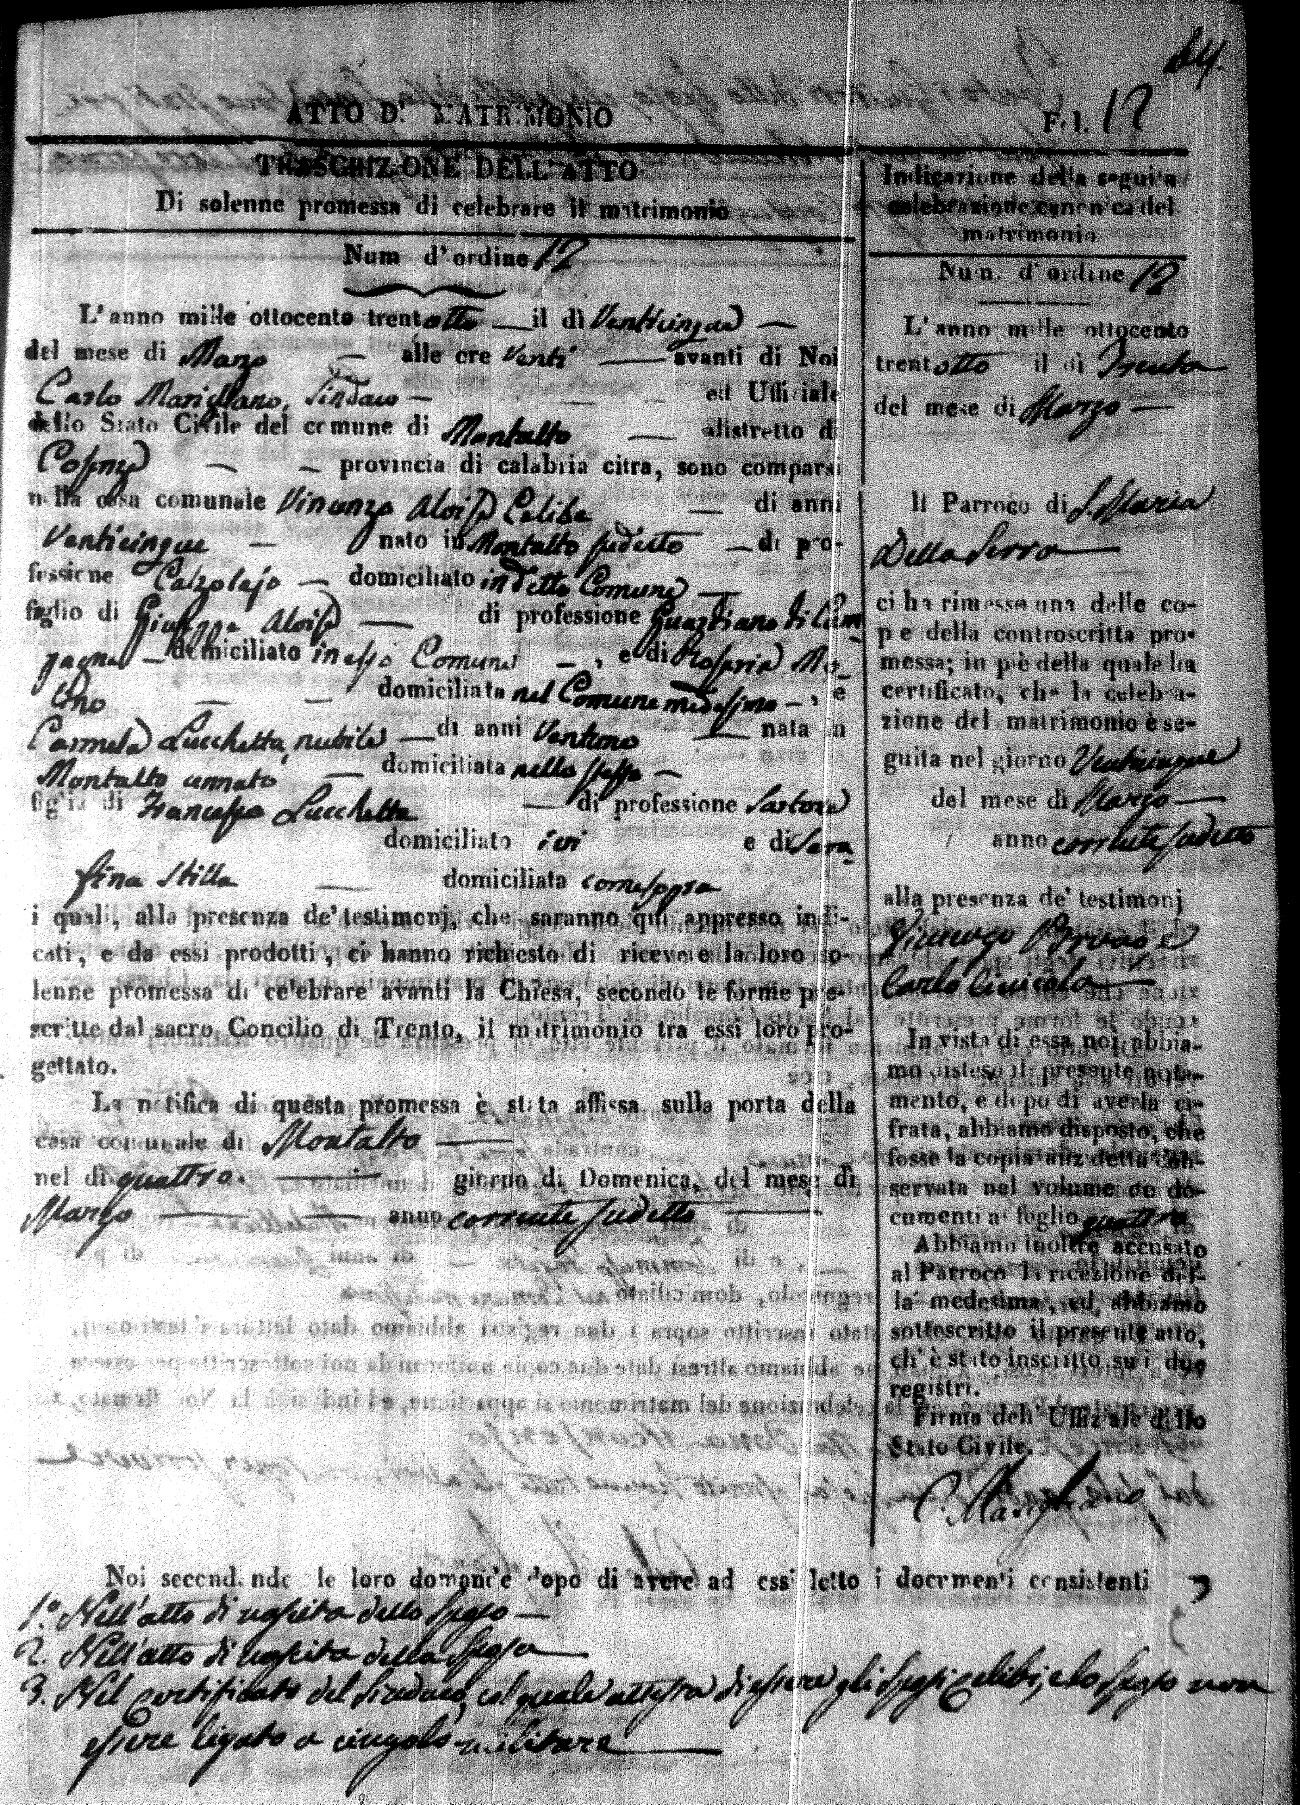 ATTO D' MATRIMONIO
F. 1. 12
TRASCRIZIONE DELL'ATTO
Di solenne promessa di celebrare il matrimonio
Num d'ordine 12
L'anno mille ottocento trentotto il dì Venticinque
del mese di Marzo alle ore venti avanti di Noi
Carlo Marigliano, Sindaco ed Ufficiale
dello Stato Civile del comune di Montalto distretto di
provincia di calabria citra, sono comparsi
nella casa comunale Vincenzo Aloise Celibe di anni
Venticinque nato in Montalto sudetto di pro-
fessione Calzolajo domiciliato in detto Comune
figlio di Giuseppe Aloise di professione Guardiano di Cam
pagna domiciliato in esso Comune, e di Rosaria
domiciliata nel Comune medesimo, e
Carmela Lucchetta, nubile di anni Ventuno nata in
Montalto domiciliata nello stesso
figlia di Francesco Lucchetta di professione Sartore
domiciliato ivi e di Sera
fina Stilla domiciliata come sopra
i quali, alla presenza de' testimonj, che saranno qui appresso indi-
cati, e da essi prodotti, ci hanno richiesto di ricevere la loro so-
lenne promessa di celebrare avanti la Chiesa, secondo le forme pre-
scritte dal sacro Concilio di Trento, il matrimonio tra essi loro pro-
gettato.
La notifica di questa promessa è stata affissa sulla porta della
casa comunale di Montalto
nel dì quattro giorno di Domenica, del mese di
Marzo anno corrente sudetto
Indicazione della seguita
celebrazione canonica del
matrimonio
Num. d'ordine 12
L'anno mille ottocento
trentotto il dì Trenta
del mese di Marzo
Il Parroco di S. Maria
Della Serra
ci ha rimessa una delle co-
pie della controscritta pro-
messa; in piè della quale ha
certificato, che la celebra-
zione del matrimonio è se-
guita nel giorno Venticinque
del mese di Marzo
anno corrente sudetto
alla presenza de' testimonj
Carlo
In vista di essa noi abbia-
mo disteso il presente nota-
mento, e dopo di averla ci-
frata, abbiamo disposto, che
fosse la copia anzidetta con-
servata nel volume de' do-
cumenti al foglio quattro
Abbiamo inoltre accusato
al Parroco la ricezione del-
la medesima, ed abbiamo
sottoscritto il presente atto,
ch'è stato inscritto su i due
registri.
Firma dell'Uffiziale dello
Stato Civile.
C. Marigliano
Noi secondando le loro domande dopo di avere ad essi letto i documenti consistenti
1.° Nell'atto di nascita dello sposo
2. Nell'atto di nascita della sposa
3. Nel certificato del Sindaco, col quale attesta di essere gli sposi celibi, e lo sposo non
essere ligato a cingolo militare